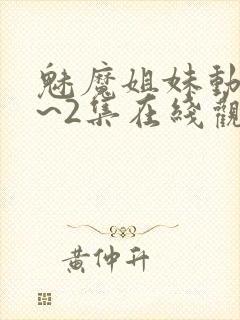 魅魔姐妹動
~2集在綫觀
黄仲升